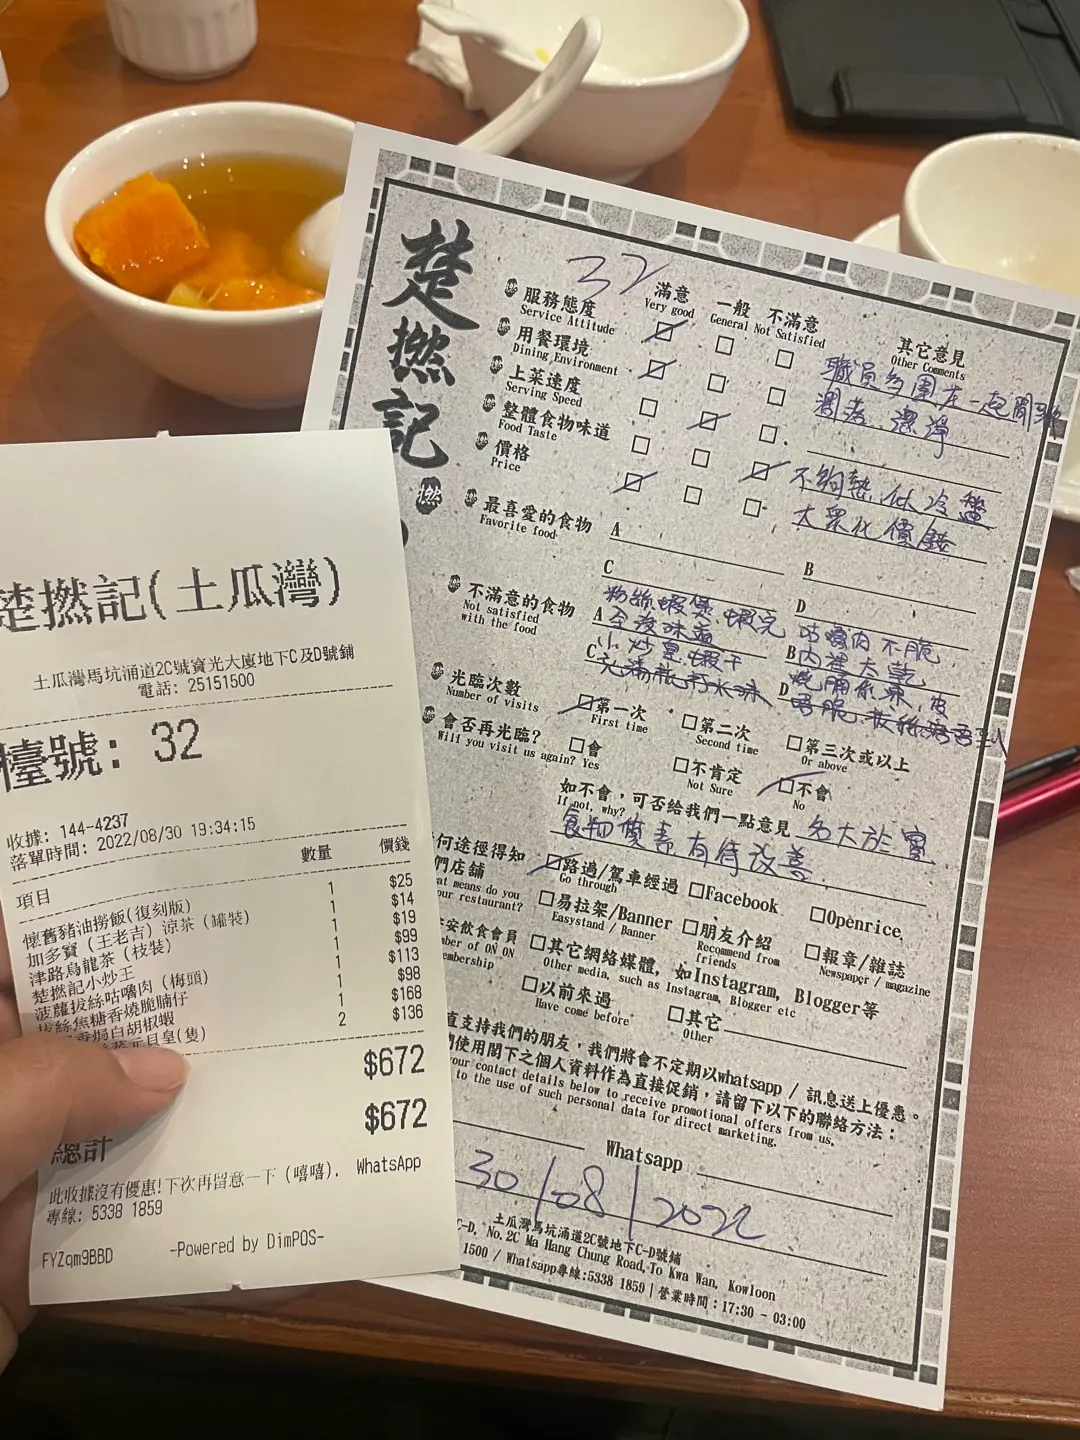 楚撚記(土瓜灣)
土瓜灣馬坑涌道2C號寶光大廈地下C及D號鋪
電話: 25151500
檯號: 32
收據: 144-4237
落單時間: 2022/08/30 19:34:15
項目 數量 價錢
懷舊豬油撈飯(復刻版) 1 $25
加多寶（王老吉）涼茶（罐裝） 1 $14
津路烏龍茶（枝裝） 1 $19
楚撚記小炒王 1 $99
菠蘿拔絲咕嚕肉（梅頭） 1 $113
拔絲焦糖香燒脆腩仔 1 $98
香焗白胡椒蝦 1 $168
元貝皇(隻) 2 $136
$672
總計 $672
此收據沒有優惠!下次再留意一下（嘻嘻）. WhatsApp
專線: 5338 1859
FYZqm9BBD -Powered by DimPOS-
楚撚記
32
滿意 一般 不滿意 其它意見
Very good General Not Satisfied Other Comments
服務態度
Service Attitude
用餐環境
Dining Environment
上菜速度
Serving Speed
整體食物味道
Food Taste
價格
Price
職員多圍左一起閒聊
潔淨
不夠熱似冷盤
大眾化價錢
最喜愛的食物
Favorite food
A B
C D
不滿意的食物
Not satisfied
with the food
A 粉絲蝦煲 蝦完全沒味道
B 咕嚕肉不脆 內裡太乾
C 小炒皇蝦干
D 燒腩
光臨次數
Number of visits
第一次
First time
第二次
Second time
第三次或以上
Or above
會否再光臨?
Will you visit us again?
會
Yes
不肯定
Not Sure
不會
No
如不會，可否給我們一點意見 名大於實
If not, why?
食物質素有待改善
何途徑得知
們店舖
at means do you
our restaurant?
路過/駕車經過
Go through
Facebook
Openrice
易拉架/Banner
Easystand / Banner
朋友介紹
Recommend from
friends
報章/雜誌
Newspaper / magazine
安飲食會員
mber of ON ON
embership
其它網絡媒體，如Instagram, Blogger等
Other media, such as Instagram, Blogger etc
以前來過
Have come before
其它
Other
直支持我們的朋友，我們將會不定期以whatsapp / 訊息送上優惠。
使用閣下之個人資料作為直接促銷，請留下以下的聯絡方法：
your contact details below to receive promotional offers from us,
to the use of such personal data for direct marketing.
Whatsapp
30/08/2022
土瓜灣馬坑涌道2C號地下C-D號鋪
C-D, No.2C Ma Hang Chung Road,To Kwa Wan, Kowloon
1500 / Whatsapp專線:5338 1859 | 營業時間：17:30 - 03:00